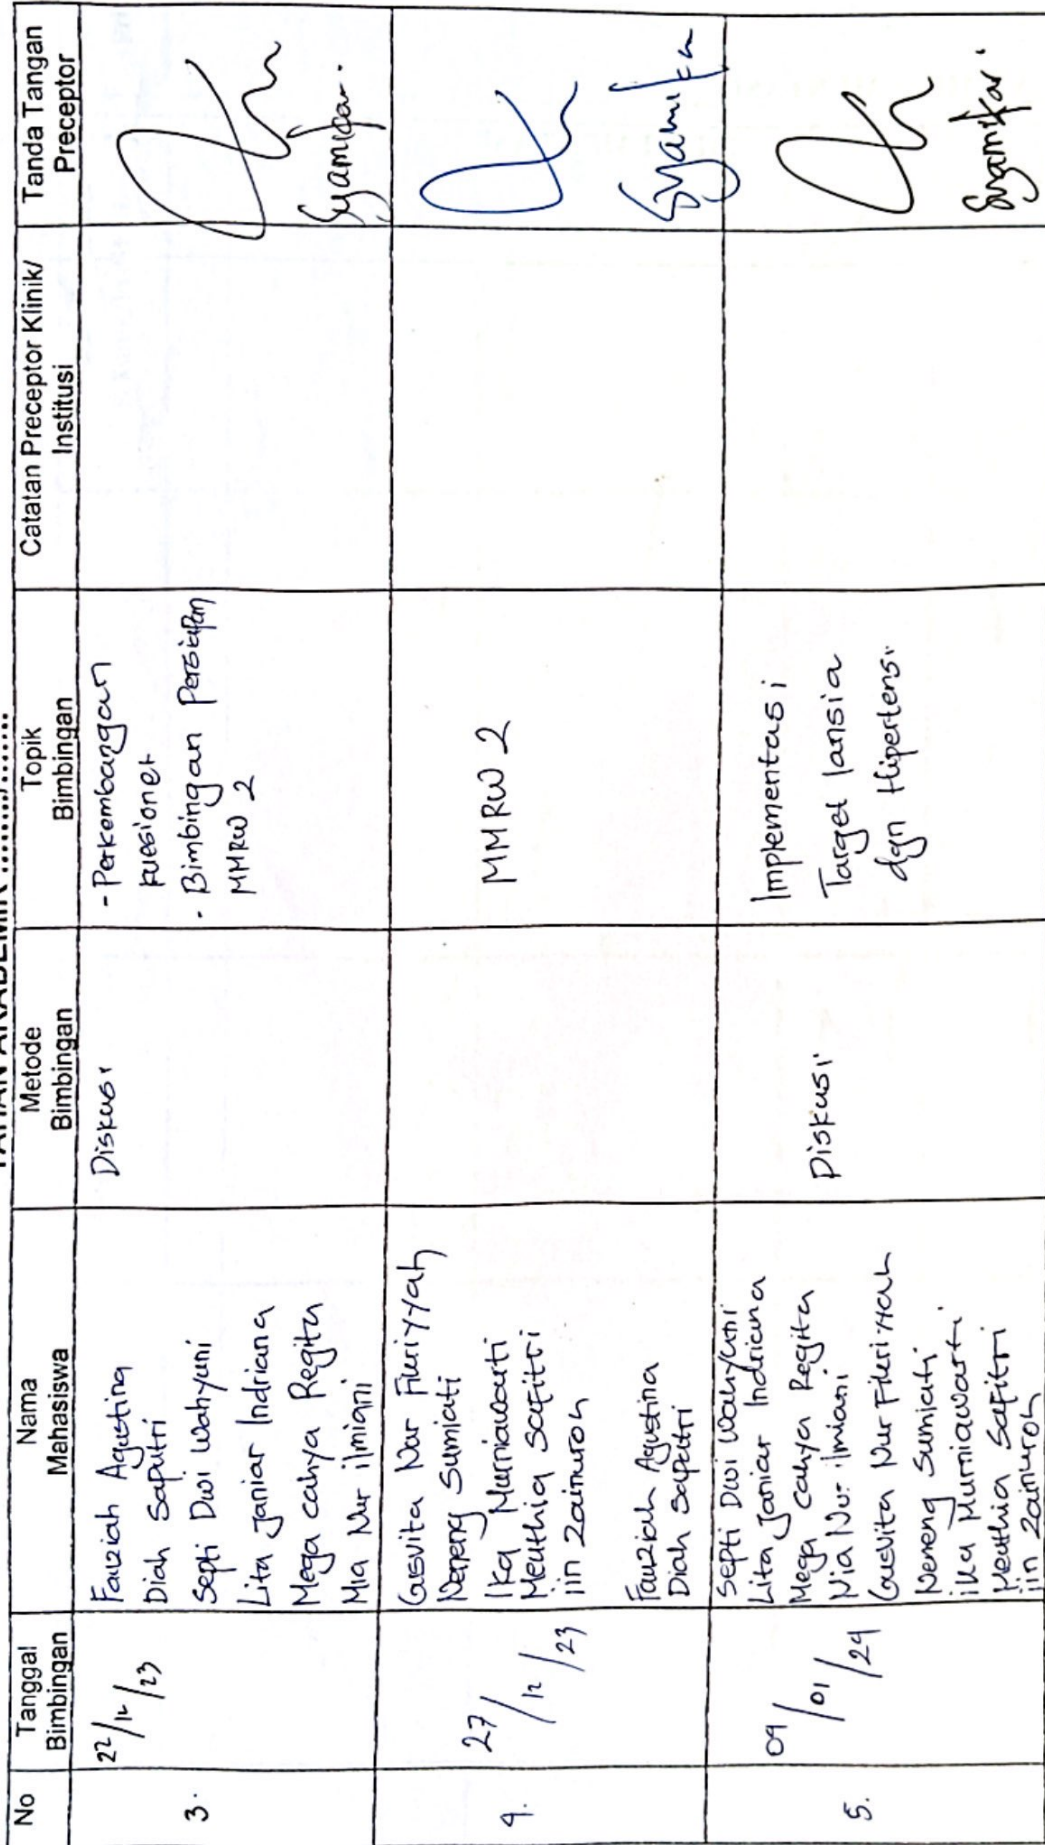 No
Tanggal
Bimbingan
Nama
Mahasiswa
Metode
Bimbingan
Topik
Bimbingan
Catatan Preceptor Klinik/
Institusi
Tanda Tangan
Preceptor
3.
22/12/23
Fauziah Agustina
Diah Saputri
Septi Dwi Wahyuni
Lita Janiar Indriana
Mega cahya Regita
Mia Nur ilmiani
Diskusi
- Perkembangan
kuesioner
- Bimbingan Persiapan
MMRW 2
Syamikar.
4.
27/12/23
Gusvita Nur Fikriyyah
Neneng Sumiati
Ika Murniawati
Meuthia Safitri
iin Zainuroh
Fauziah Agustina
Diah Saputri
MMRW 2
Syamikar
5.
09/01/24
Septi Dwi Wahyuni
Lita Janiar Indriana
Mega cahya Regita
Nia Nur ilmiani
Gusvita Nur Fikriyyah
Neneng Sumiati
ika Murniawati
Meuthia Safitri
iin Zainuroh
Diskusi
Implementasi
Target lansia
dgn Hipertensi
Syamikar.